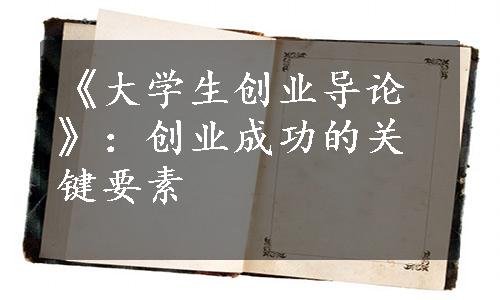 《大学生创业导论
》：创业成功的关
键要素